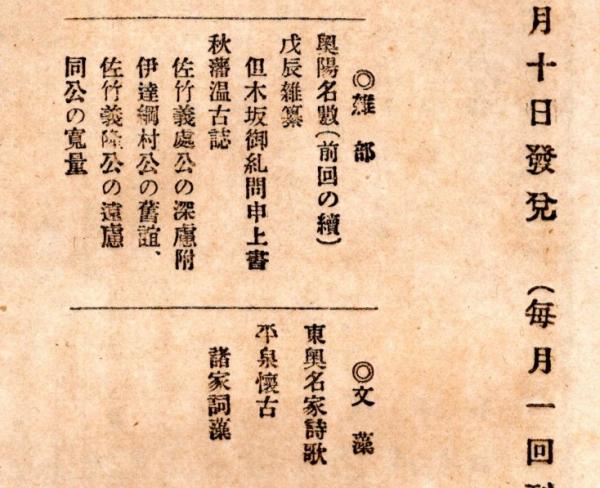 月十日發兌 (每月一回
◎雜部
奧陽名數(前回の續)
戊辰雜纂
但木坂御糺問申上書
秋藩温古誌
佐竹義處公の深慮附
伊達綱村公の舊誼、
佐竹義隆公の遠慮
同公の寬量
◎文藻
東奧名家詩歌
平泉懷古
諸家詞藻